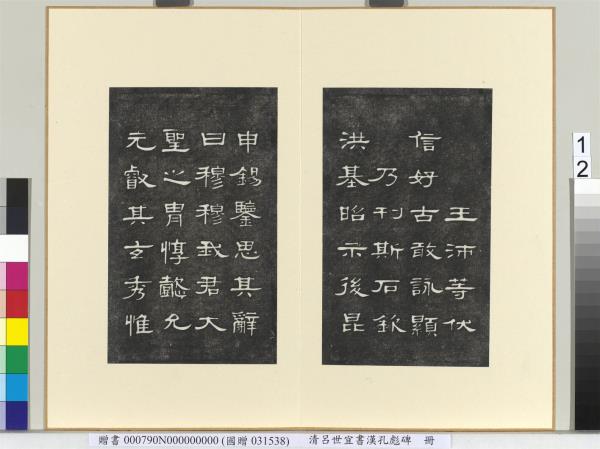 王沛等伏
信好古敢詠顯
乃刊斯石欽
洪基昭示後昆
申錫鑒思其辭
曰穆穆我君大
聖之胄惇懿允
元叡其玄秀惟
1
2
贈書 000790N000000000 (國贈 031538) 清呂世宜書漢孔彪碑 冊